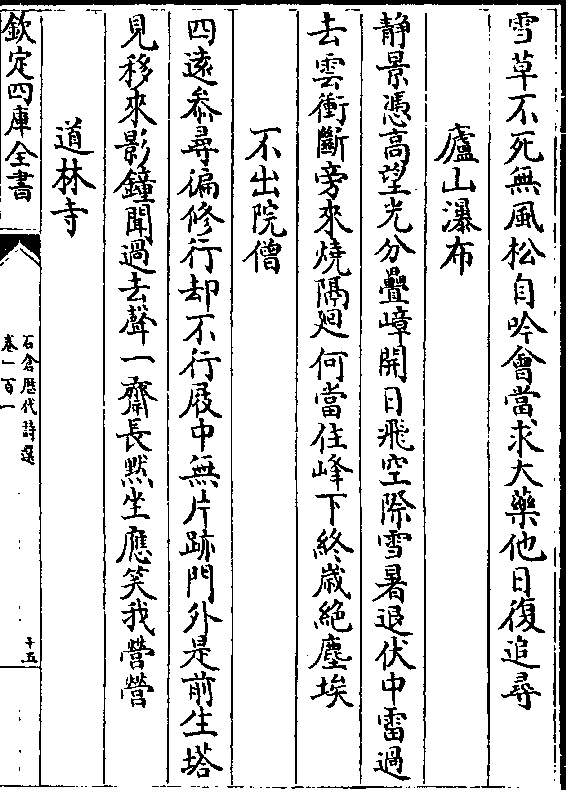 雪草不死無風松自吟會當求大藥他日復追尋
廬山瀑布
静景憑高望光分疊嶂開日飛空際雪暑退伏中雷過
去雲衝斷旁來燒隔廻何當住峰下終歲絶塵埃
不出院僧
四遠叅尋徧修行却不行屐中無片跡門外是前生塔
見移來影鐘聞過去聲一齋長黙坐應笑我營營
道林寺
欽定四庫全書
石倉歴代詩選
卷一百一
十五